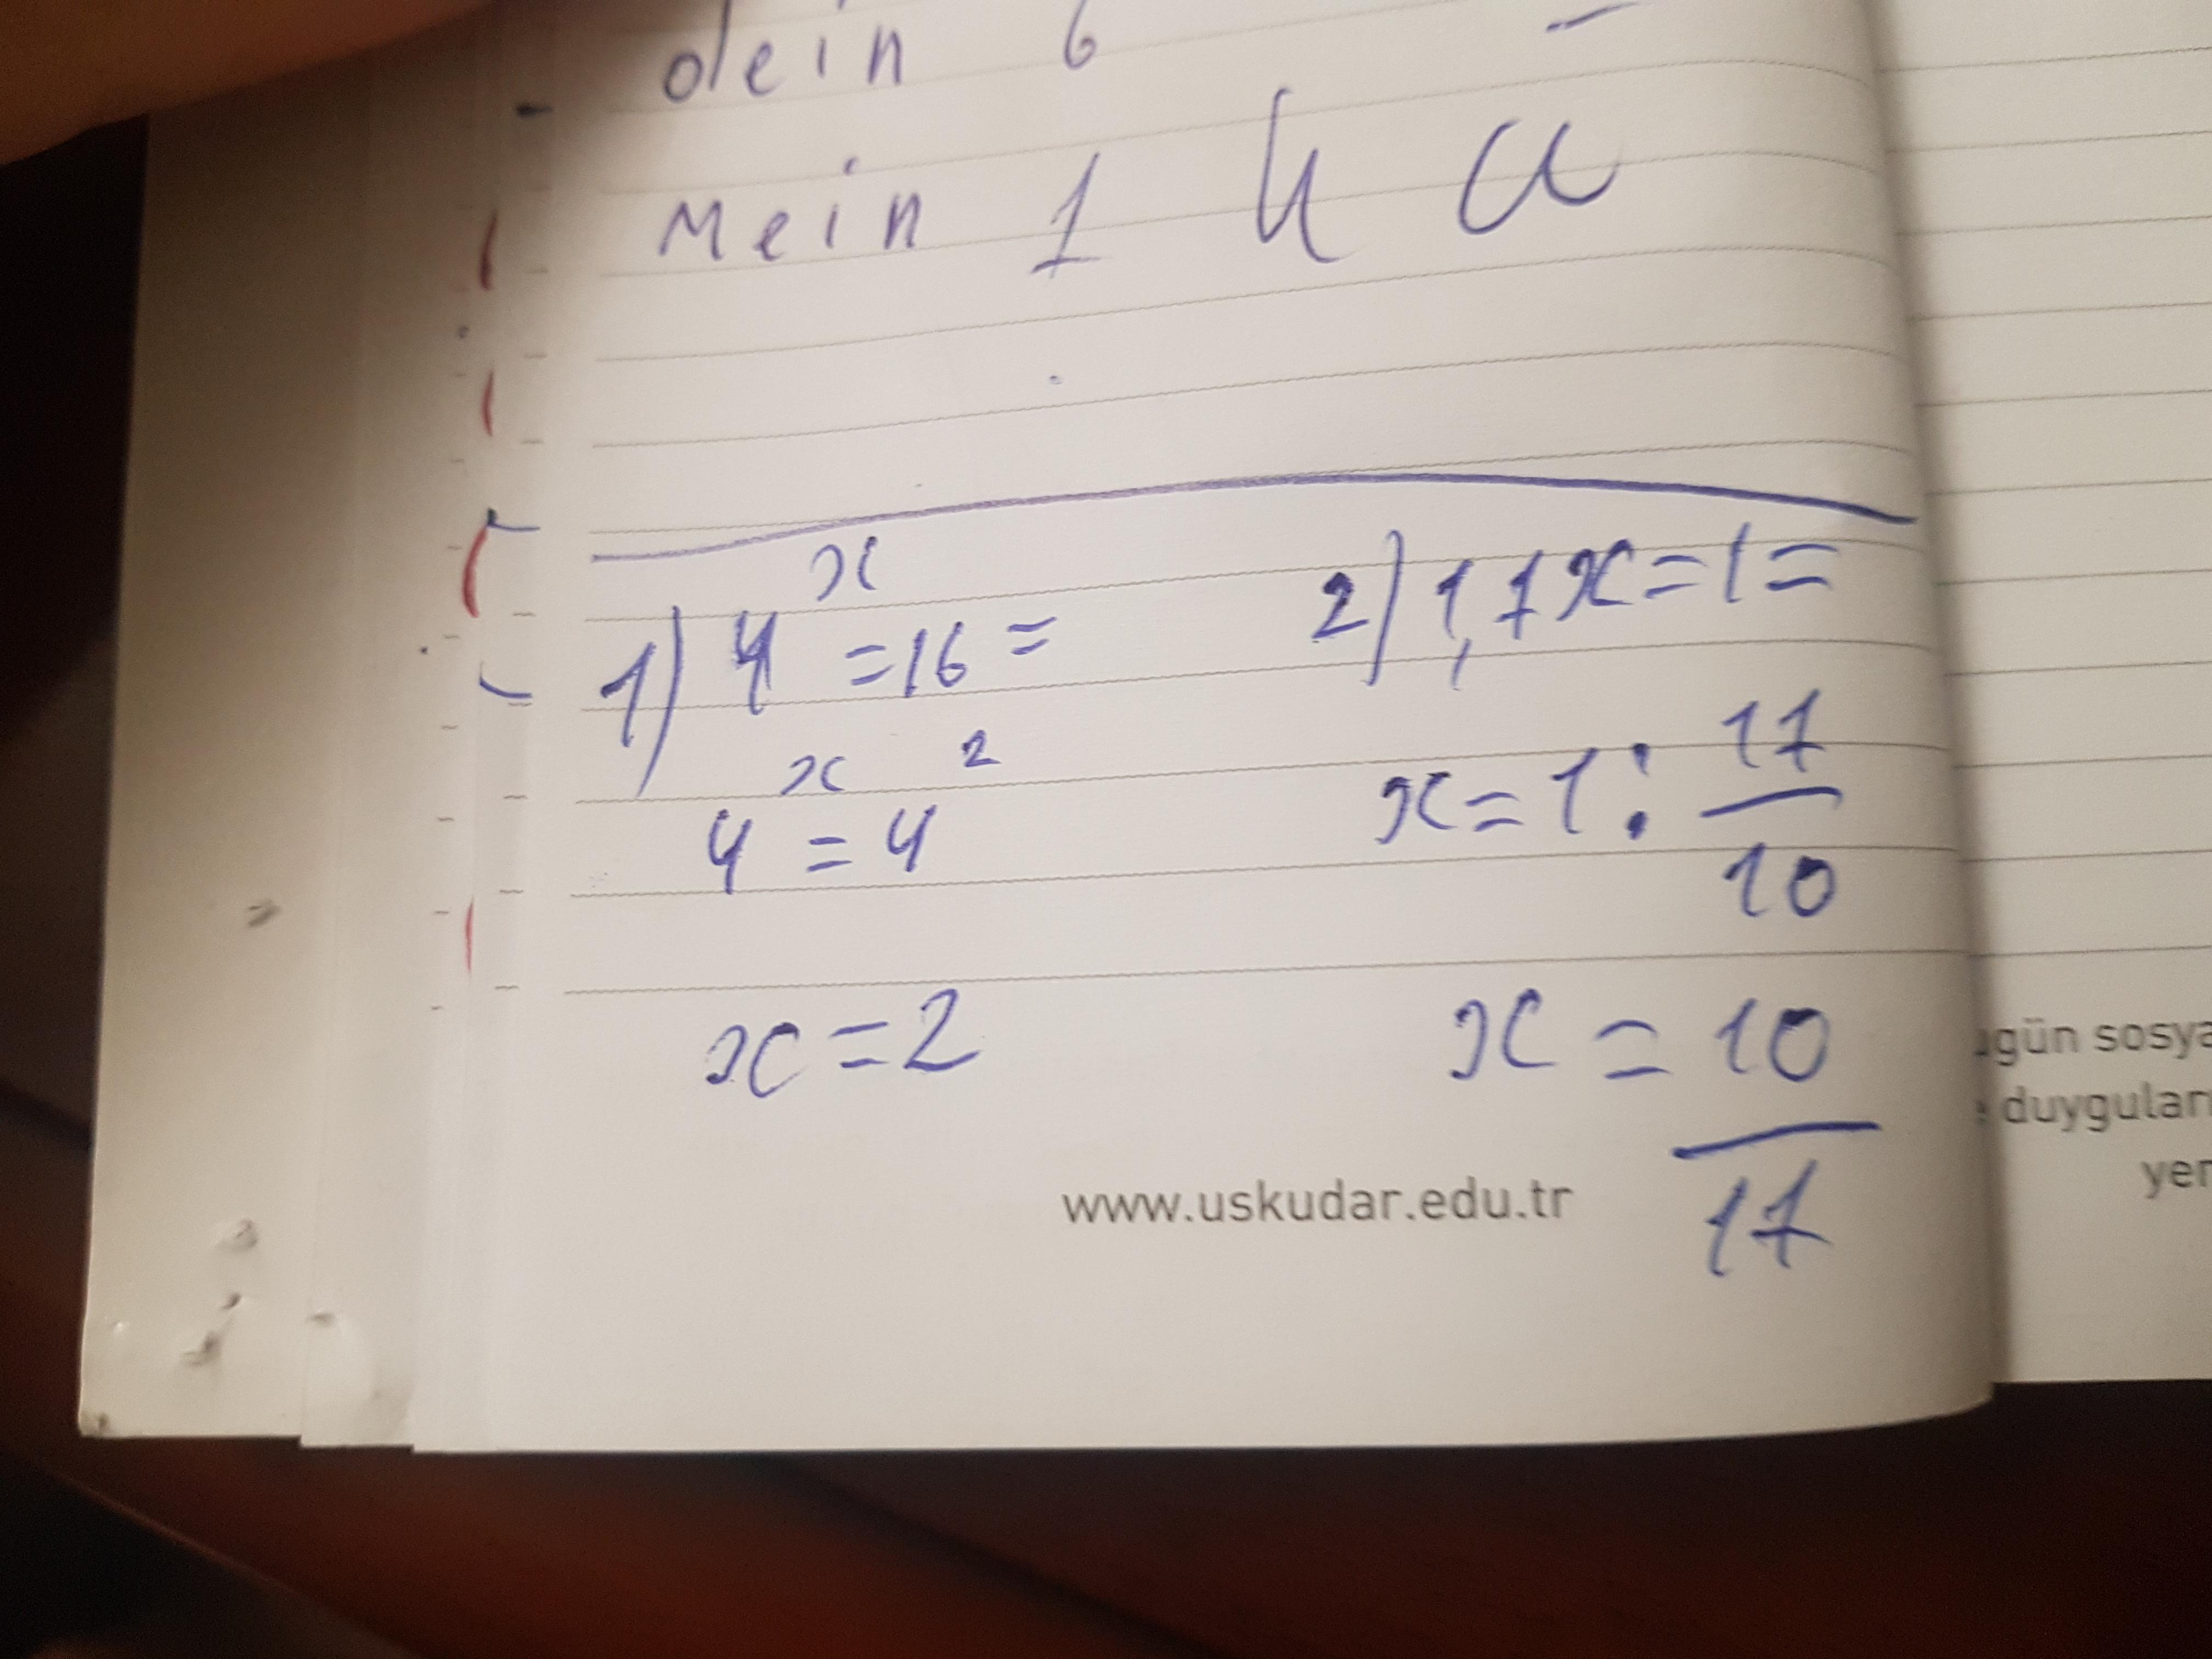 dein 6
Mein 1 4 a
1) 4ˣ = 16 =
4ˣ = 4²
x = 2
2) 1,7x = 1 =
x = 1 : 17/10
x = 10/17
www.uskudar.edu.tr
ugün sosya
duyguları
yer